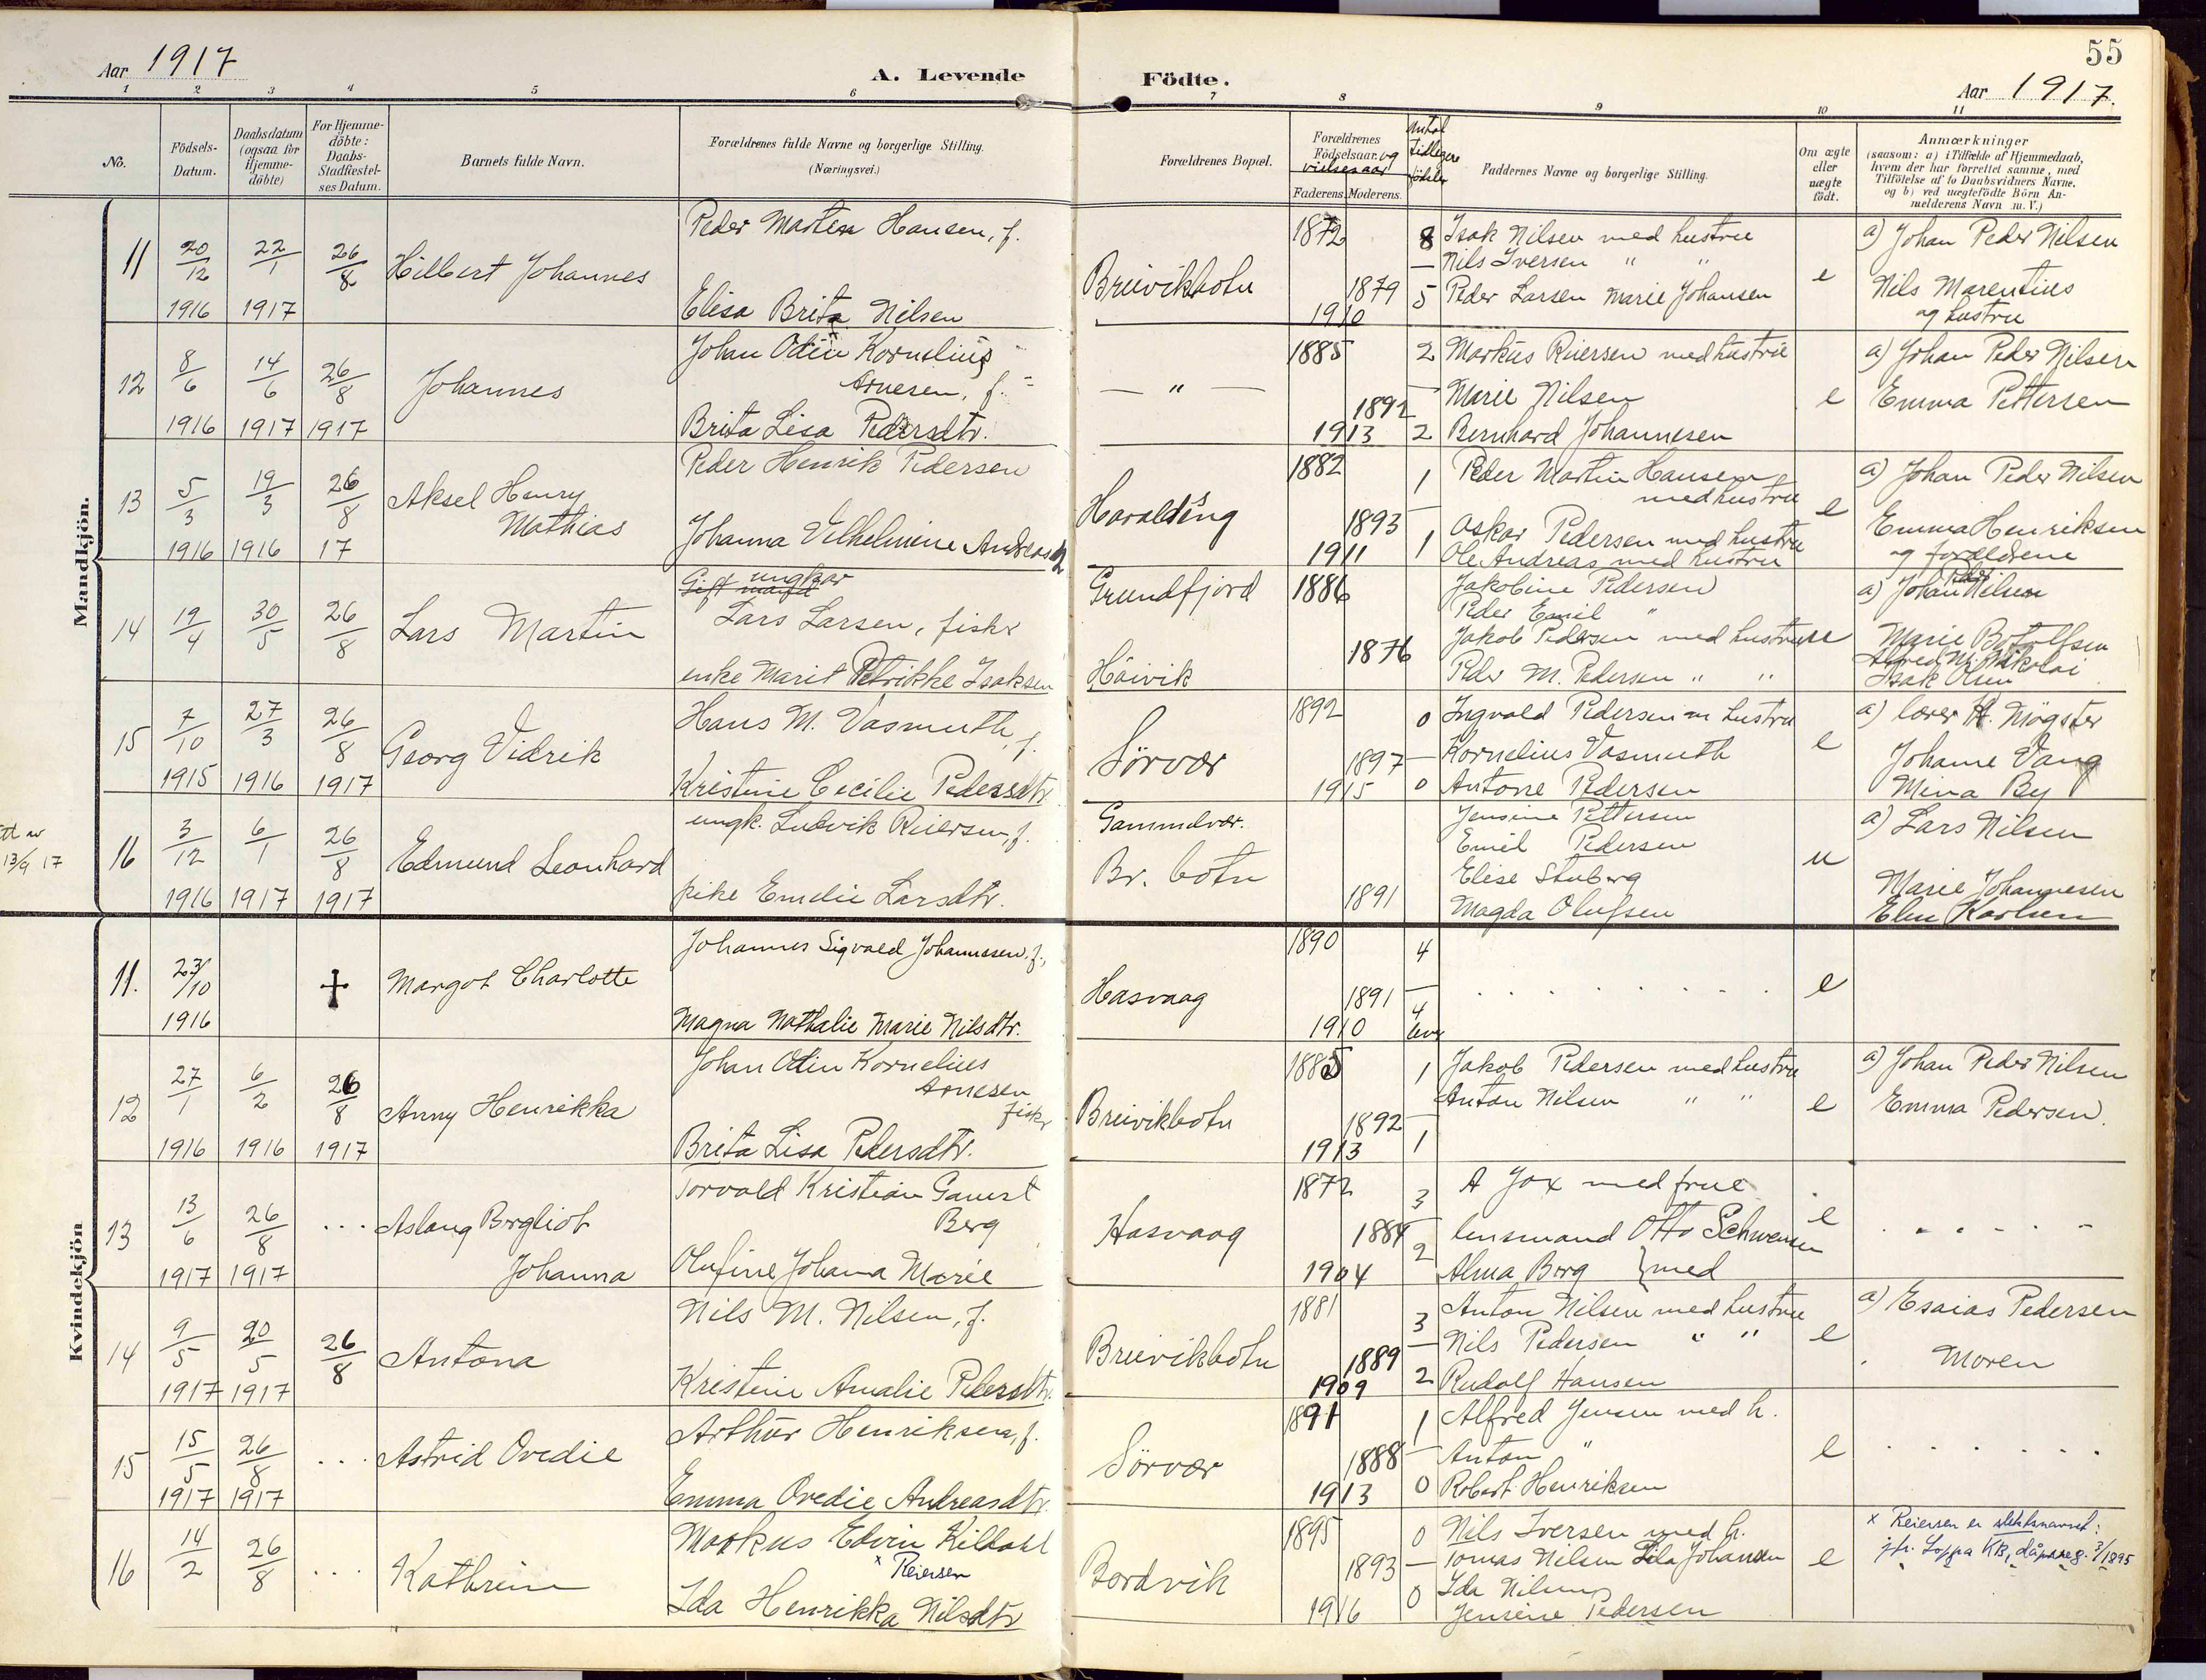 55
Aar 1917
A. Levende Födte.
Aar 1917.
1 2 3 4 5 6 7 8 9 10 11
No.
Födsels-Datum.
Daabsdatum (ogsaa for Hjemme-döbte)
For Hjemme-döbte: Daabs-Stadfæstel-ses Datum.
Barnets fulde Navn.
Forældrenes fulde Navne og borgerlige Stilling.
(Næringsvei.)
Forældrenes Bopæl.
Forældrenes Födselsaar. og vielsesaar
Faderens. Moderens.
Antal tidligere födsler
Faddernes Navne og borgerlige Stilling.
Om ægte eller uægte födt.
Anmærkninger
(saasom: a) i Tilfælde af Hjemmedaab,
hvem der har forrettet samme, med
Tilföielse af to Daabsvidners Navne,
og b) ved uægtefödte Börn An-
melderens Navn m. V.)
Mandkjön.
11 20/12 1916 22/1 1917 26/8 Hilbert Johannes
Peder Morten Hansen, f.
Elisa Brita Nilsen
Breivikbotn
1872 1879 1910
8 — 5
Isak Nilsen med hustru
Nils Iversen " "
Peder Larsen Marie Johansen
e
a) Johan Peder Nilsen
Nils Marentius
og hustru
12 8/6 1916 14/6 1917 26/8 1917 Johannes
Johan Odin Kornelius
Arnesen, f.
Brita Lisa Pedersdtr.
— " —
1885 1892 1913
2 — 2
Markus Riersen med hustru
Marie Nilsen
Bernhard Johannesen
e
a) Johan Peder Nilsen
Emma Pettersen
13 5/3 1916 19/3 1916 26/8 17 Aksel Henry
Mathias
Peder Henrik Pedersen
Johanna Vilhelmine Andreasen
Haraldeng
1882 1893 1911
1 — 1
Peder Martin Hansen
med hustru
Oskar Pedersen med hustru
Ole Andreas med hustru
e
a) Johan Peder Nilsen
Emma Henriksen
og forældrene
14 19/4 30/5 26/8 Lars Martin
Gift mand ungkar
Lars Larsen, fisker
enke Marit Petrikke Isaksen
Grundfjord
Håivik
1886 1876
Jakobine Pedersen
Peder Emil "
Jakob Pedersen med hustru
Peder M. Pedersen " "
u
a) Johan Peder Nilsen
Marie Botolfsen
Alfred M. Nikolai
Isak Olsen
15 7/10 1915 27/3 1916 26/8 1917 Georg Vidrik
Hans M. Vasmuth, f.
Kristine Cecilie Pedersdtr
Sörvær
1892 1897 1915
0 — 0
Ingvald Pedersen m hustru
Kornelius Vasmuth
Antone Pedersen
e
a) lærer H. Mögster
Johanne Vang
Mina By
13/9 17
16 3/12 1916 6/1 1917 26/8 1917 Edmund Leonhard
ungk. Ludvik Reiersen, f.
pike Emelie Larsdtr.
Gammelvær.
Br. botn
1891
Jensine Pettersen
Emil Pedersen
Elise Stuberg
Magda Olufsen
u
a) Lars Nilsen
Marie Johannesen
Elen Karlsen
Kvindekjön
11. 23/10 1916 † Margot Charlotte
Johannes Sigvald Johannessen, f.,
Magna Nathalie Marie Nilsdtr.
Hasvaag
1890 1891 1910
4 — 4 lev
. . . . . . . . .
e
12 27/1 1916 6/2 1916 26/8 1917 Anny Henrikka
Johan Odin Kornelius
Arnesen
fisker
Brita Lisa Pedersdtr.
Breivikbotn
1885 1892 1913
1 — 1
Jakob Pedersen med hustru
Anton Nilsen " "
e
a) Johan Peder Nilsen
Emma Pedersen.
13 13/6 1917 26/8 1917 . . . Aslaug Bergliot
Johanna
Torvald Kristian Gaust
Berg
Olufine Johana Marie
Hasvaag
1872 1884 1904
3 — 2
A Jox med frue
lensmand Otto Schwensen
Alma Borg } med
e
. . . . .
14 9/5 1917 20/5 1917 26/8 Antona
Nils M. Nilsen, f.
Kristine Amalie Pedersdtr.
Breivikbotn
1881 1889 1909
3 — 2
Anton Nilsen med hustru
Nils Pedersen " "
Rudolf Hansen
e
a) Esaias Pedersen
Moren
15 15/5 1917 26/8 1917 . . . Astrid Ovedie
Arthur Henriksen, f.
Emma Ovedie Andreasdtr.
Sörvær
1891 1888 1913
1 — 0
Alfred Jensen med h.
Anton "
Robert Henriksen
e
. . . . . .
16 14/2 26/8 . . . Kathrin
Markus Edvin Kildahl
x Reiersen
Ida Henrikka Nilsdtr
Bordvik
1895 1893 1916
0 — 0
Nils Iversen med h.
Tomas Nilsen Lila Johansen
Ida Nilsen
Jensine Pedersen
e
x Reiersen er slektsnavnet:
jfr. Loppa KB, dåpsreg. 3/1895